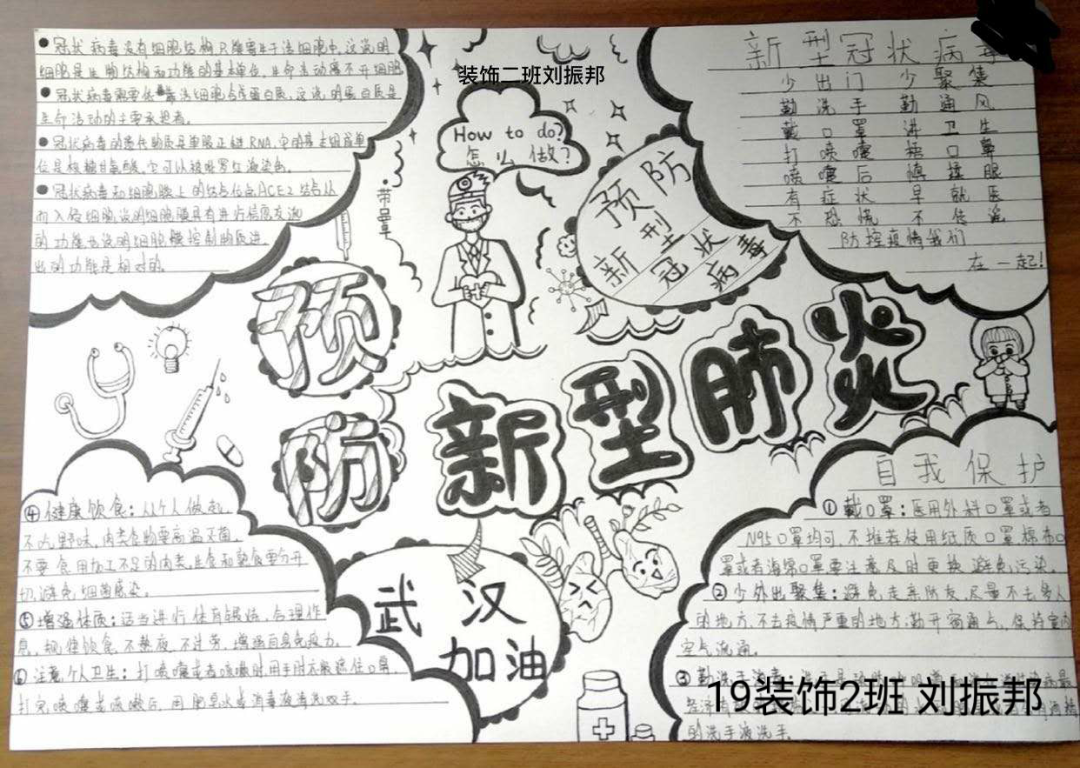 ● 冠状病毒没有细胞结构只能寄生于活细胞中,这说明
细胞是生物结构和功能的基本单位,生命活动离不开细胞
● 冠状病毒需要依靠活细胞合成蛋白质,这说明蛋白质是
生命活动的主要承担者。
● 冠状病毒的遗传物质是单股正链RNA,它的基本组成单
位是核糖核苷酸,它可以被吡罗红染色。
● 冠状病毒和细胞膜上的结合位点ACE2结合从
而入侵细胞,说明细胞膜具有进行信息交流
的功能也说明细胞膜控制物质进
出的功能是相对的。
装饰二班刘振邦
How to do?
怎么做?
带罩
预防
新型冠状
病毒
新型冠状病毒
少出门少聚集
勤洗手勤通风
戴口罩讲卫生
打喷嚏捂口鼻
喷嚏后慎揉眼
有症状早就医
不恐慌不传谣
防控疫情我们
在一起!
预防
新型肺炎
武汉
加油
④ 健康饮食:从个人做起,
不吃野味,肉类食物要高温灭菌,
不要食用加工不足的肉类,生食和熟食要分开
切,避免细菌感染。
⑤ 增强体质:适当进行体育锻炼,合理作
息,规律饮食,不熬夜,不过劳,增强自身免疫力。
⑥ 注意个人卫生:打喷嚏或者咳嗽时用手肘衣服遮住口鼻,
打完喷嚏或咳嗽后,用肥皂水或消毒液清洗双手。
自我保护
① 戴口罩:医用外科口罩或者
N95口罩均可,不推荐使用纸质口罩棉布口
罩或者海绵口罩要注意及时更换,避免污染。
② 少外出聚集:避免走亲防友,尽量不去多人
的地方,不去疫情严重的地方,勤开窗通气,保持室内
空气流通。
③ 勤洗手消毒
的洗手液洗手。
19装饰2班 刘振邦